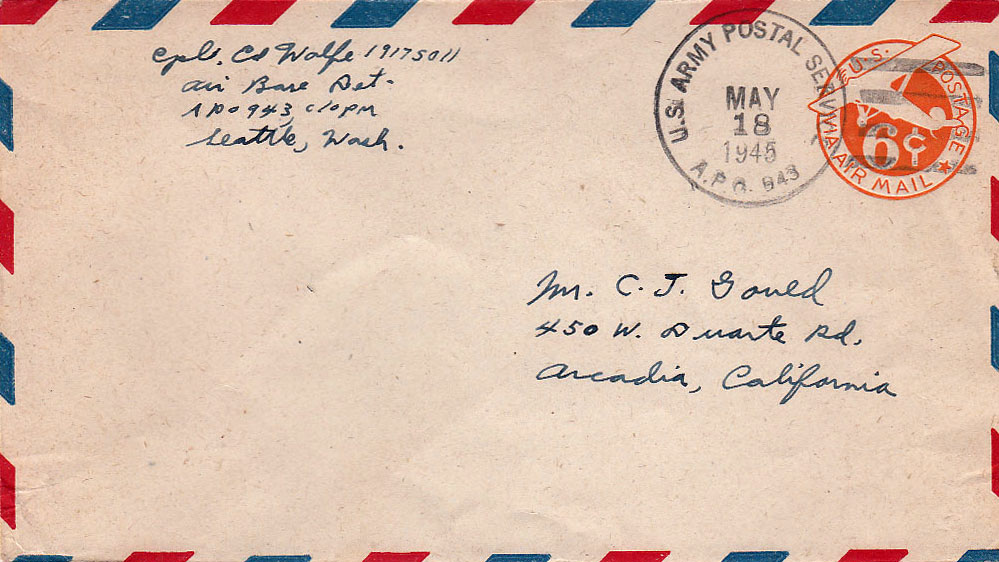 Cpl. Ed Wolfe 19175011
Air Base Det.
APO 943 c/o PM
Seattle, Wash.
U.S. ARMY POSTAL SERVI
MAY
18
1945
A.P.O. 943
U.S. POSTAGE
6¢
VIA AIR MAIL
Mr. C. J. Gould
450 W. Duarte Rd.
Arcadia, California